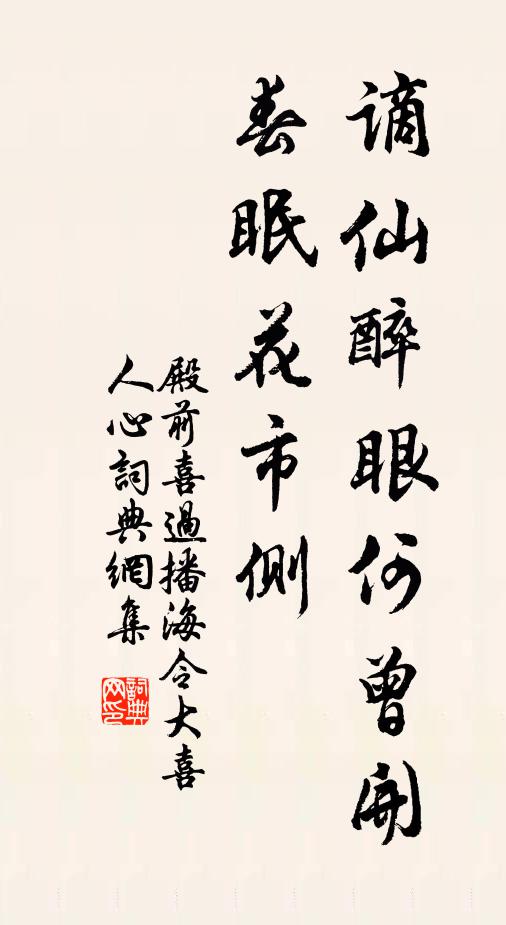 謫仙醉眼何曾開
春眠花市側
殿前喜過播海令大喜
人心詞典網集
詞典网印